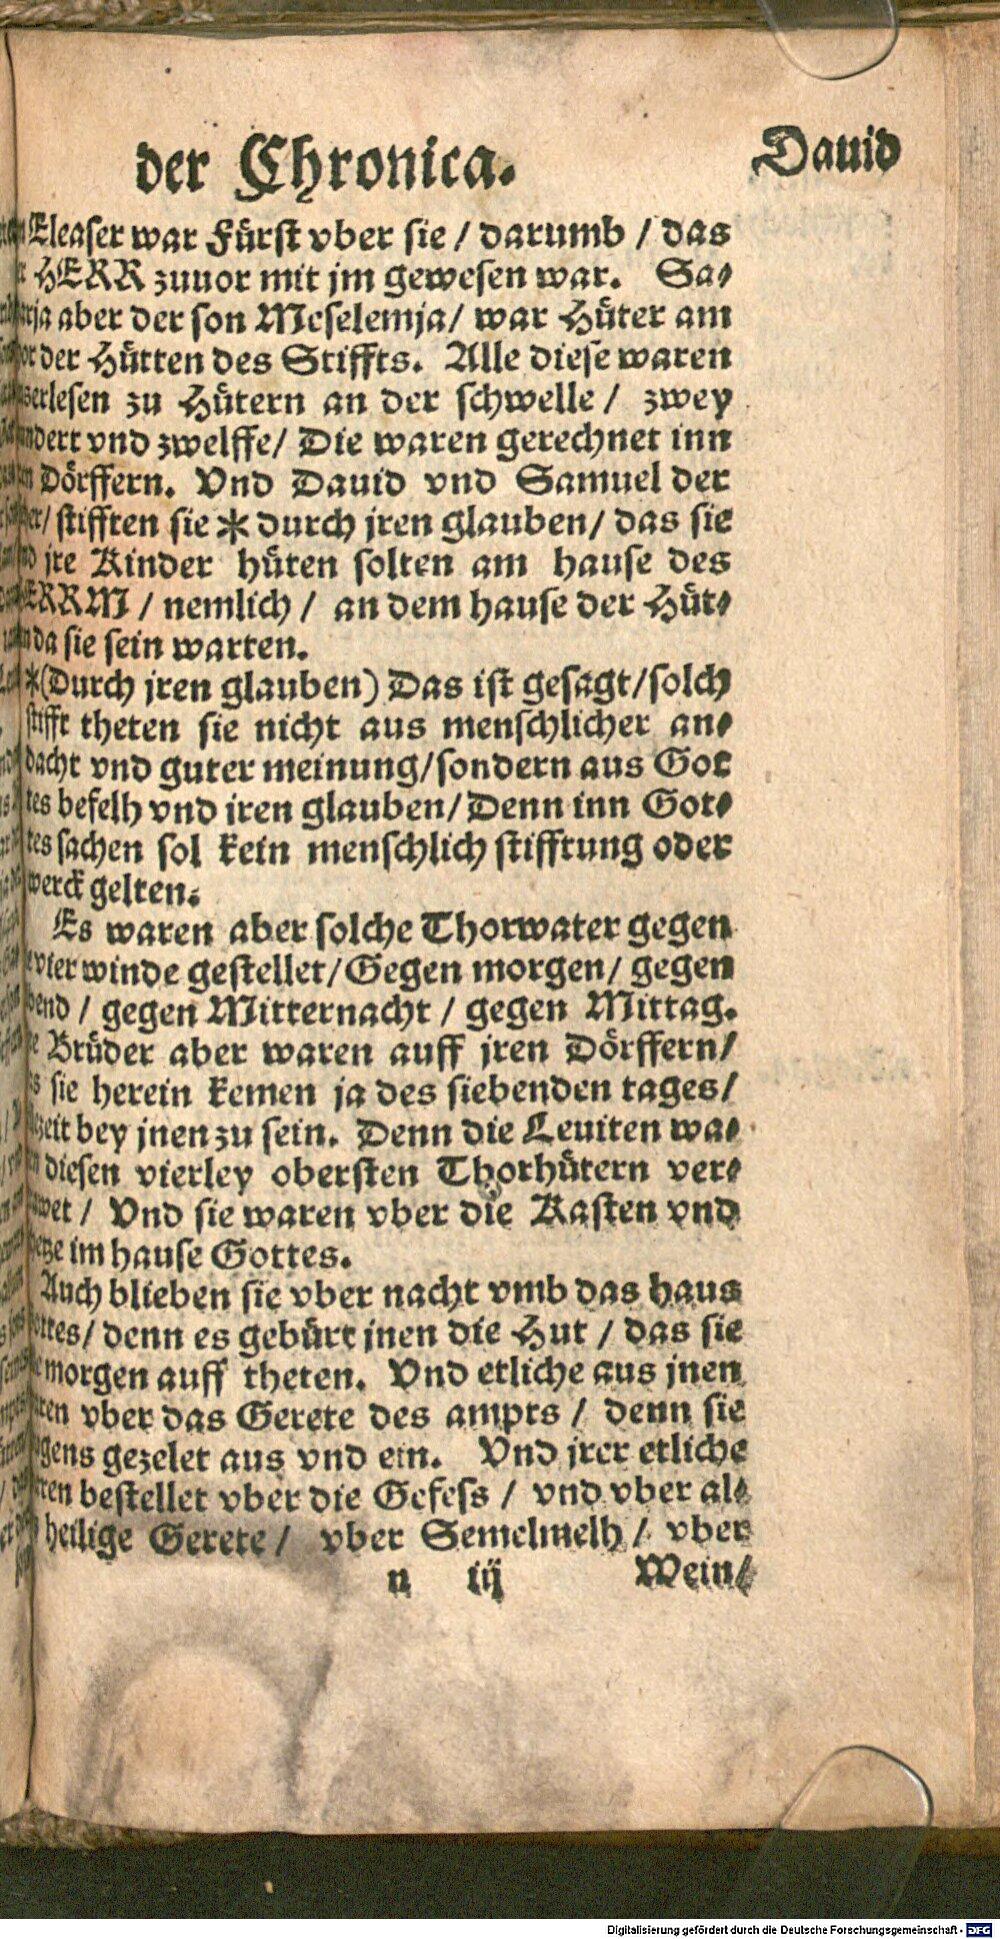 der Chronica. Dauid
Eleaser war Fürst vber sie / darumb / das
HERR zuuor mit jm gewesen war. Sa⸗
rja aber der son Meselemja / war Hüter am
der Hütten des Stiffts. Alle diese waren
serlesen zu Hütern an der schwelle / zwey
ndert vnd zwelffe / Die waren gerechnet inn
Dörffern. Vnd Dauid vnd Samuel der
er / stifften sie * durch jren glauben / das sie
jre Kinder hüten solten am hause des
ERRN / nemlich / an dem hause der Hüt⸗
da sie sein warten.
*(Durch jren glauben) Das ist gesagt / solch
stifft theten sie nicht aus menschlicher an⸗
dacht vnd guter meinung / sondern aus Got
tes befelh vnd iren glauben / Denn inn Got⸗
tes sachen sol kein menschlich stifftung oder
werck gelten.
Es waren aber solche Thorwater gegen
vier winde gestellet / Gegen morgen / gegen
bend / gegen Mitternacht / gegen Mittag.
Brüder aber waren auff jren Dörffern /
sie herein kemen ja des siebenden tages /
zeit bey jnen zu sein. Denn die Leuiten wa⸗
diesen vierley obersten Thorhütern ver⸗
wet / Vnd sie waren vber die Kasten vnd
etze im hause Gottes.
Auch blieben sie vber nacht vmb das haus
ttes / denn es gebürt jnen die Hut / das sie
morgen auff theten. Vnd etliche aus jnen
ren vber das Gerete des ampts / denn sie
gens gezelet aus vnd ein. Vnd jrer etliche
ren bestellet vber die Gefess / vnd vber al⸗
heilige Gerete / vber Semelmelh / vber
n iij Wein /
Digitalisierung gefördert durch die Deutsche Forschungsgemeinschaft - DFG